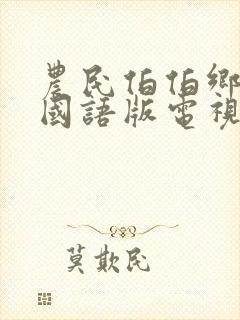 農民伯伯鄉
國語版電視
莫欺民